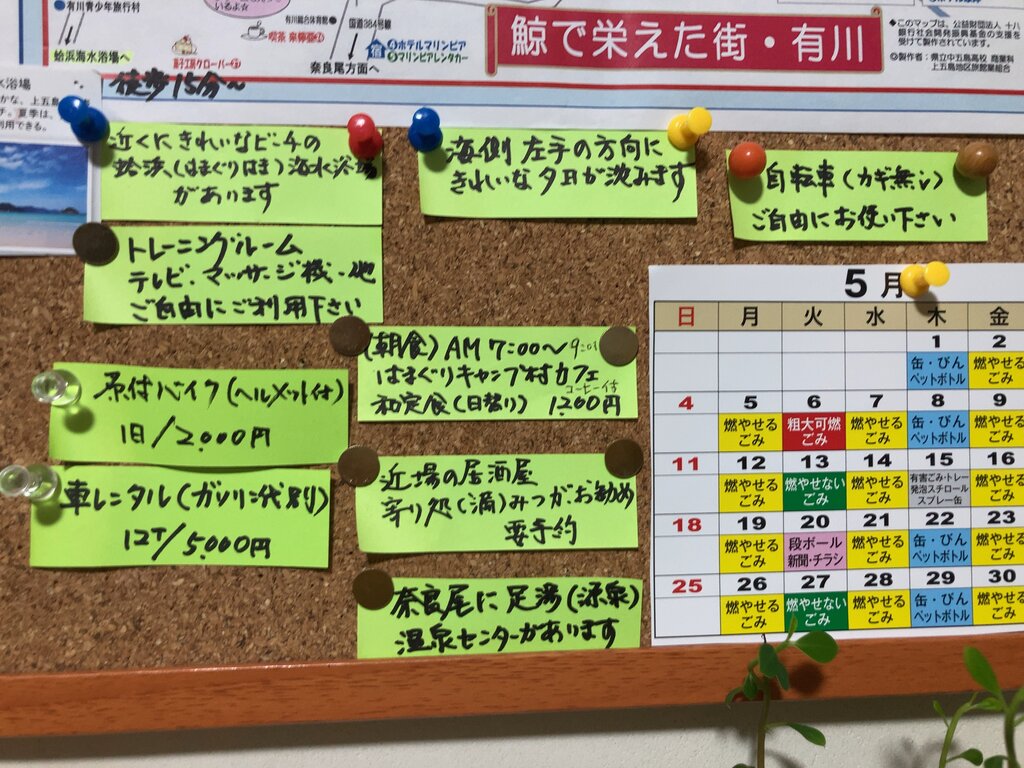 有川青少年旅行村
蛤浜海水浴場へ
有川総合体育館
国道384号線
喫茶 来俥屋
菓子工房クローバー
奈良尾方面へ
ホテルマリンピア
マリンピアレンタカー
鯨で栄えた街・有川
このマップは、公益財団法人 十八
銀行社会開発振興基金の支援を
受けて製作されています。
製作者:県立中五島高校 商業科
上五島地区旅館業組合
徒歩15分〜
近くにきれいなビーチの
蛤浜(はまぐりはま)海水浴場
があります
海側 左手の方向に
きれいな夕日が沈みます
自転車(カギ無し)
ご自由にお使い下さい
トレーニングルーム
テレビ、マッサージ機・他
ご自由にご利用下さい
(朝食)AM 7:00〜
はまぐりキャンプ村カフェ
コーヒー付
和定食(日替り) 1,200円
原付バイク(ヘルメット付)
1日/2,000円
車レンタル(ガソリン代別)
12T/5,000円
近場の居酒屋
寄り処(満)みつが、お勧め
要予約
奈良尾に足湯(源泉)
温泉センターがあります
5月
日 月 火 水 木 金
1 2
缶・びん ペットボトル 燃やせるごみ
4 5 6 7 8 9
燃やせるごみ 粗大可燃ごみ 燃やせるごみ 缶・びん ペットボトル 燃やせるごみ
11 12 13 14 15 16
燃やせるごみ 燃やせないごみ 燃やせるごみ 有害ごみ・トレー 発泡スチロール スプレー缶 燃やせるごみ
18 19 20 21 22 23
燃やせるごみ 段ボール 新聞・チラシ 燃やせるごみ 缶・びん ペットボトル 燃やせるごみ
25 26 27 28 29 30
燃やせるごみ 燃やせないごみ 燃やせるごみ 缶・びん ペットボトル 燃やせるごみ